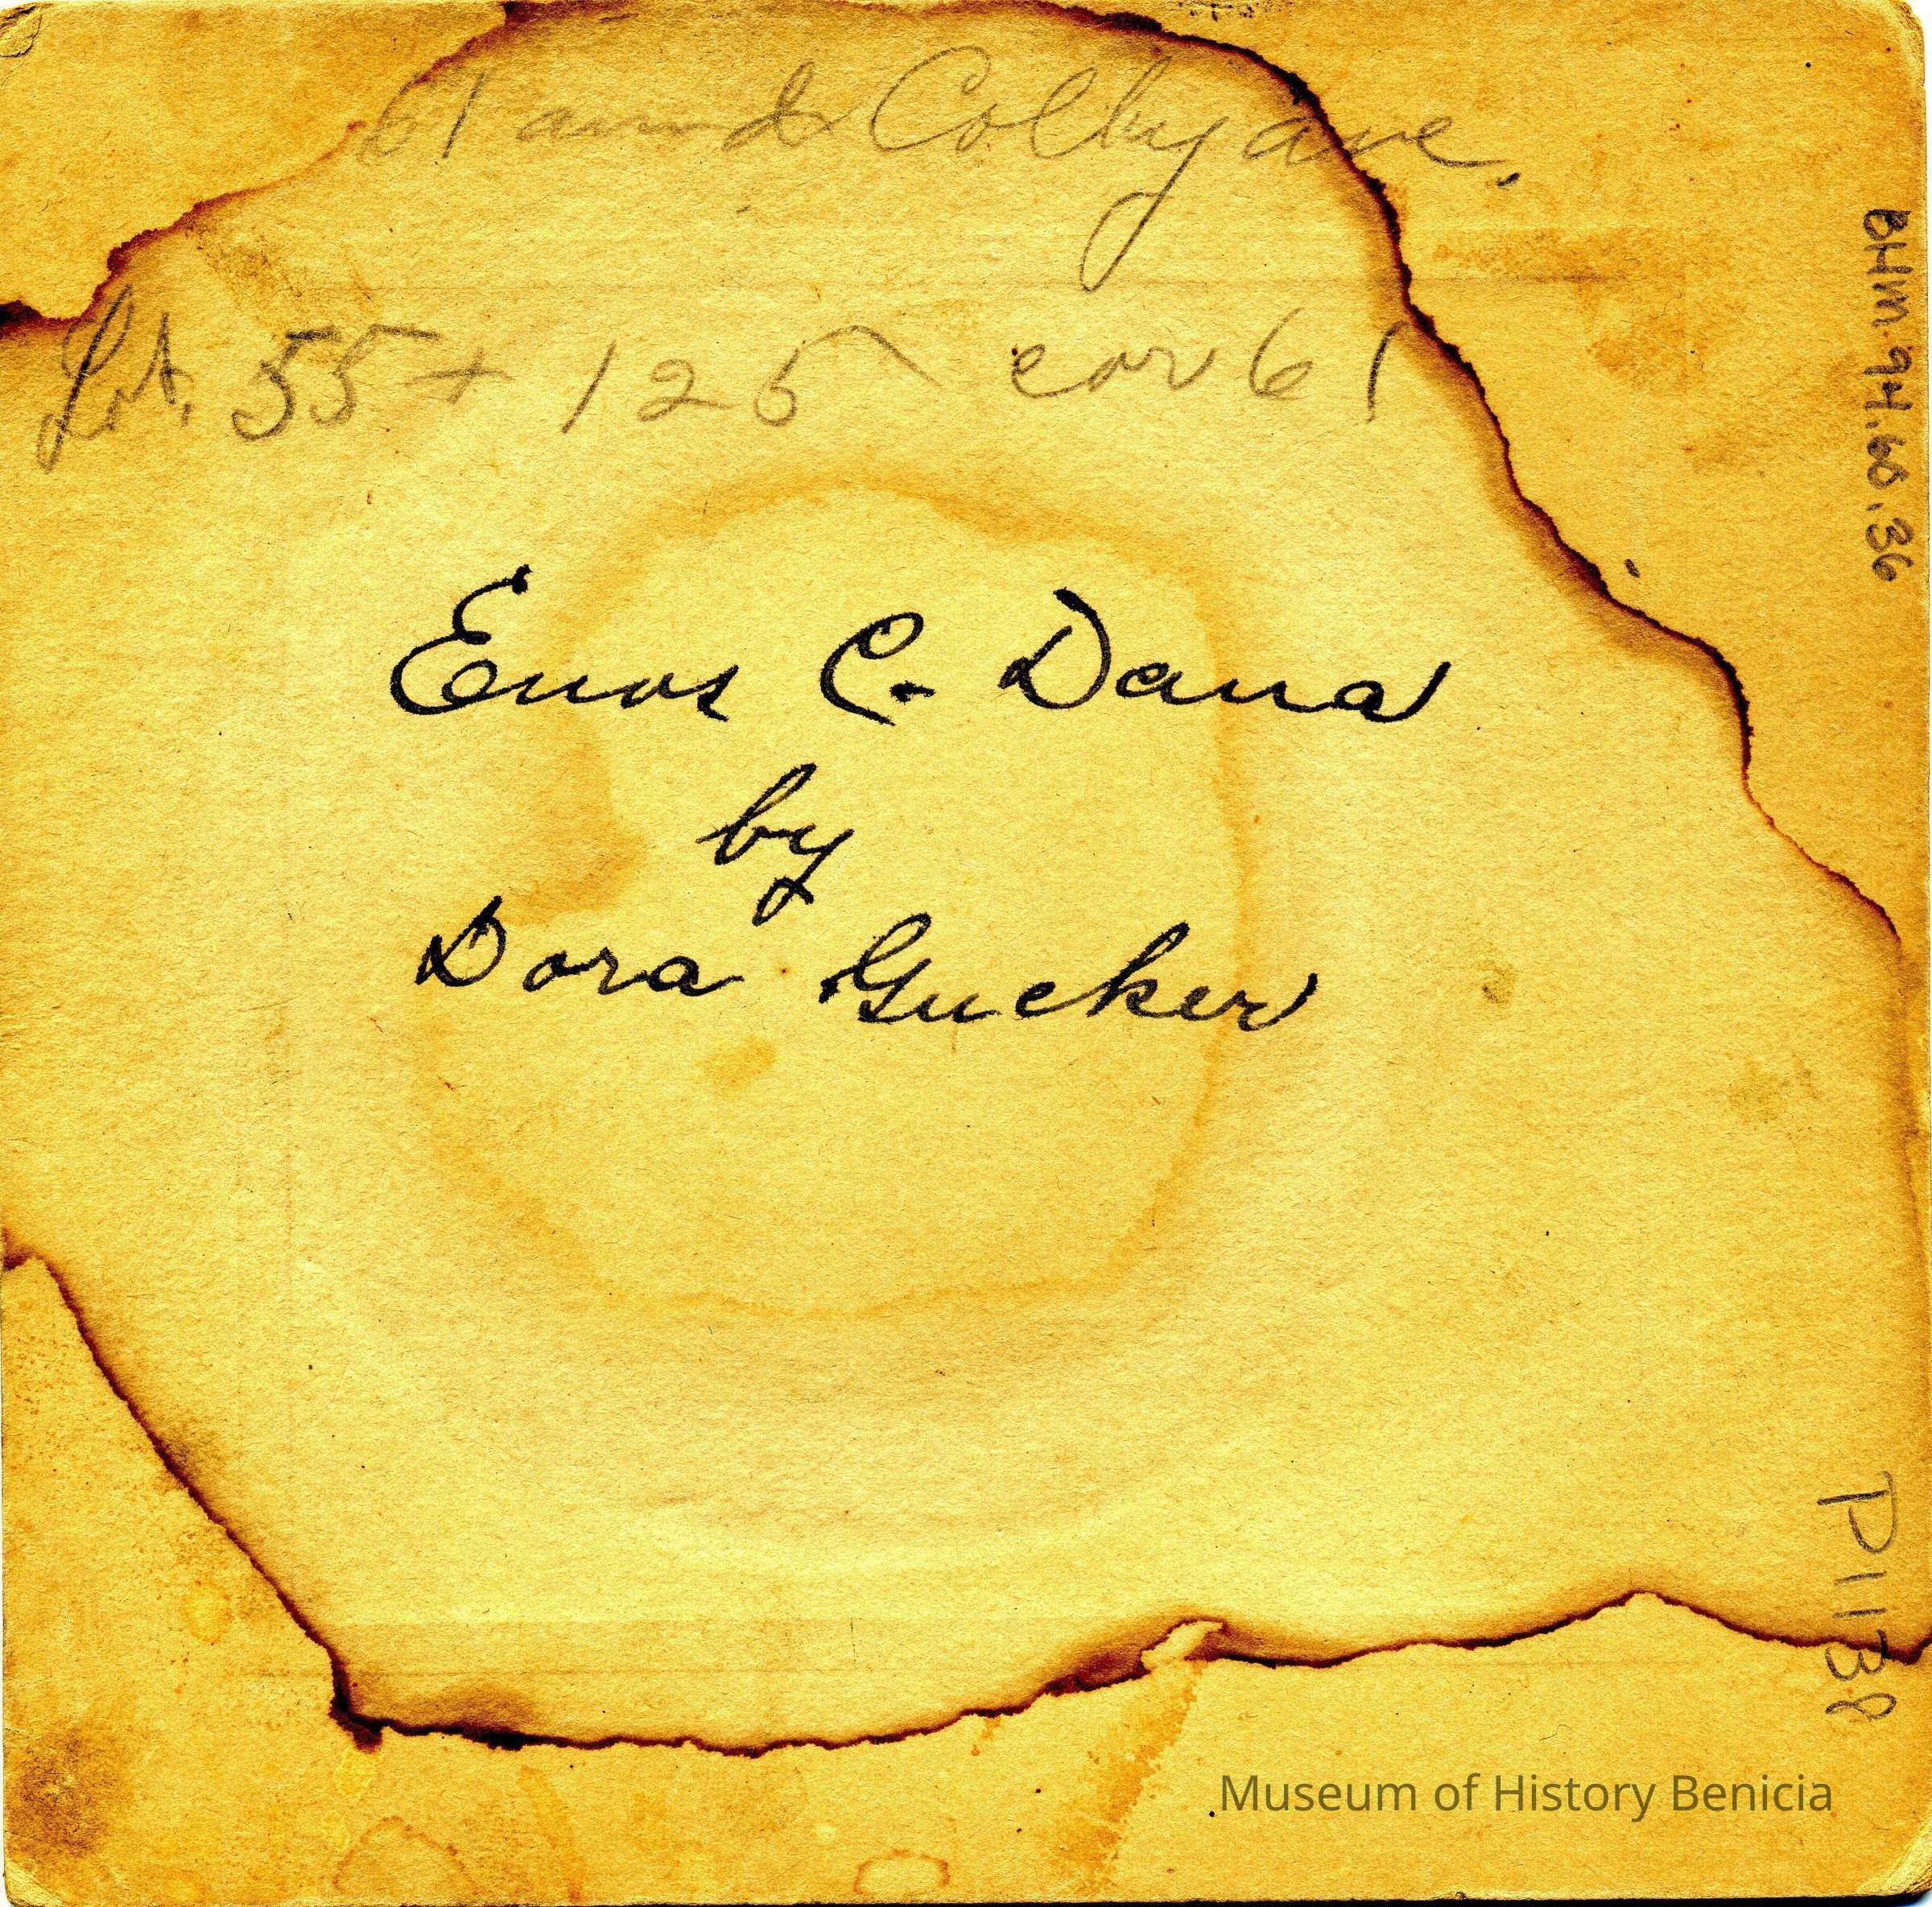 61 and Colby ave.
Lot. 55 + 125 cor 61
Enos C. Dana
by
Dora Gucker
BHM 94.68.36
P1138
Museum of History Benicia